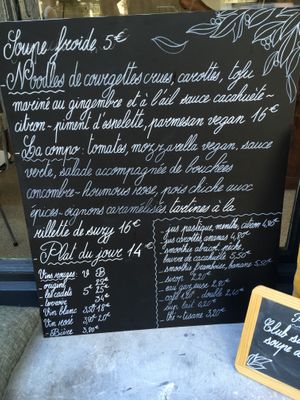 Soupe froide 5€
- Noodles de courgettes crues, carottes, tofu
mariné au gingembre et à l'ail sauce cacahuète -
citron - piment d'espelette, parmesan vegan 16€
- La compo: tomates, mozzarella vegan, sauce
verte, salade accompagnée de bouchées
concombre - houmous rose, pois chiche aux
épices - oignons caramélisés, tartines à la
rillette de suzy 16€
- Plat du jour 14€
Vins rouges: V B
- origin
- les cadets 5€ 25
24
Vin blanc
Vin rosé 20
- Bière 3,90
- jus pastèque, menthe, citron 4,90
- jus carottes, ananas 4,80
- smoothie abricot, pêche,
beurre de cacahuète 5,50
- smoothie framboise, banane 5,50
- sirop 2,20
- eau pur suze
- café 1,80 - double 2,40
- sup. lait 0,20
- thé - tisane 3,20
Club s
soupe